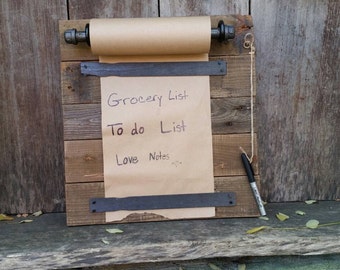 Grocery List
To do List
Love Notes